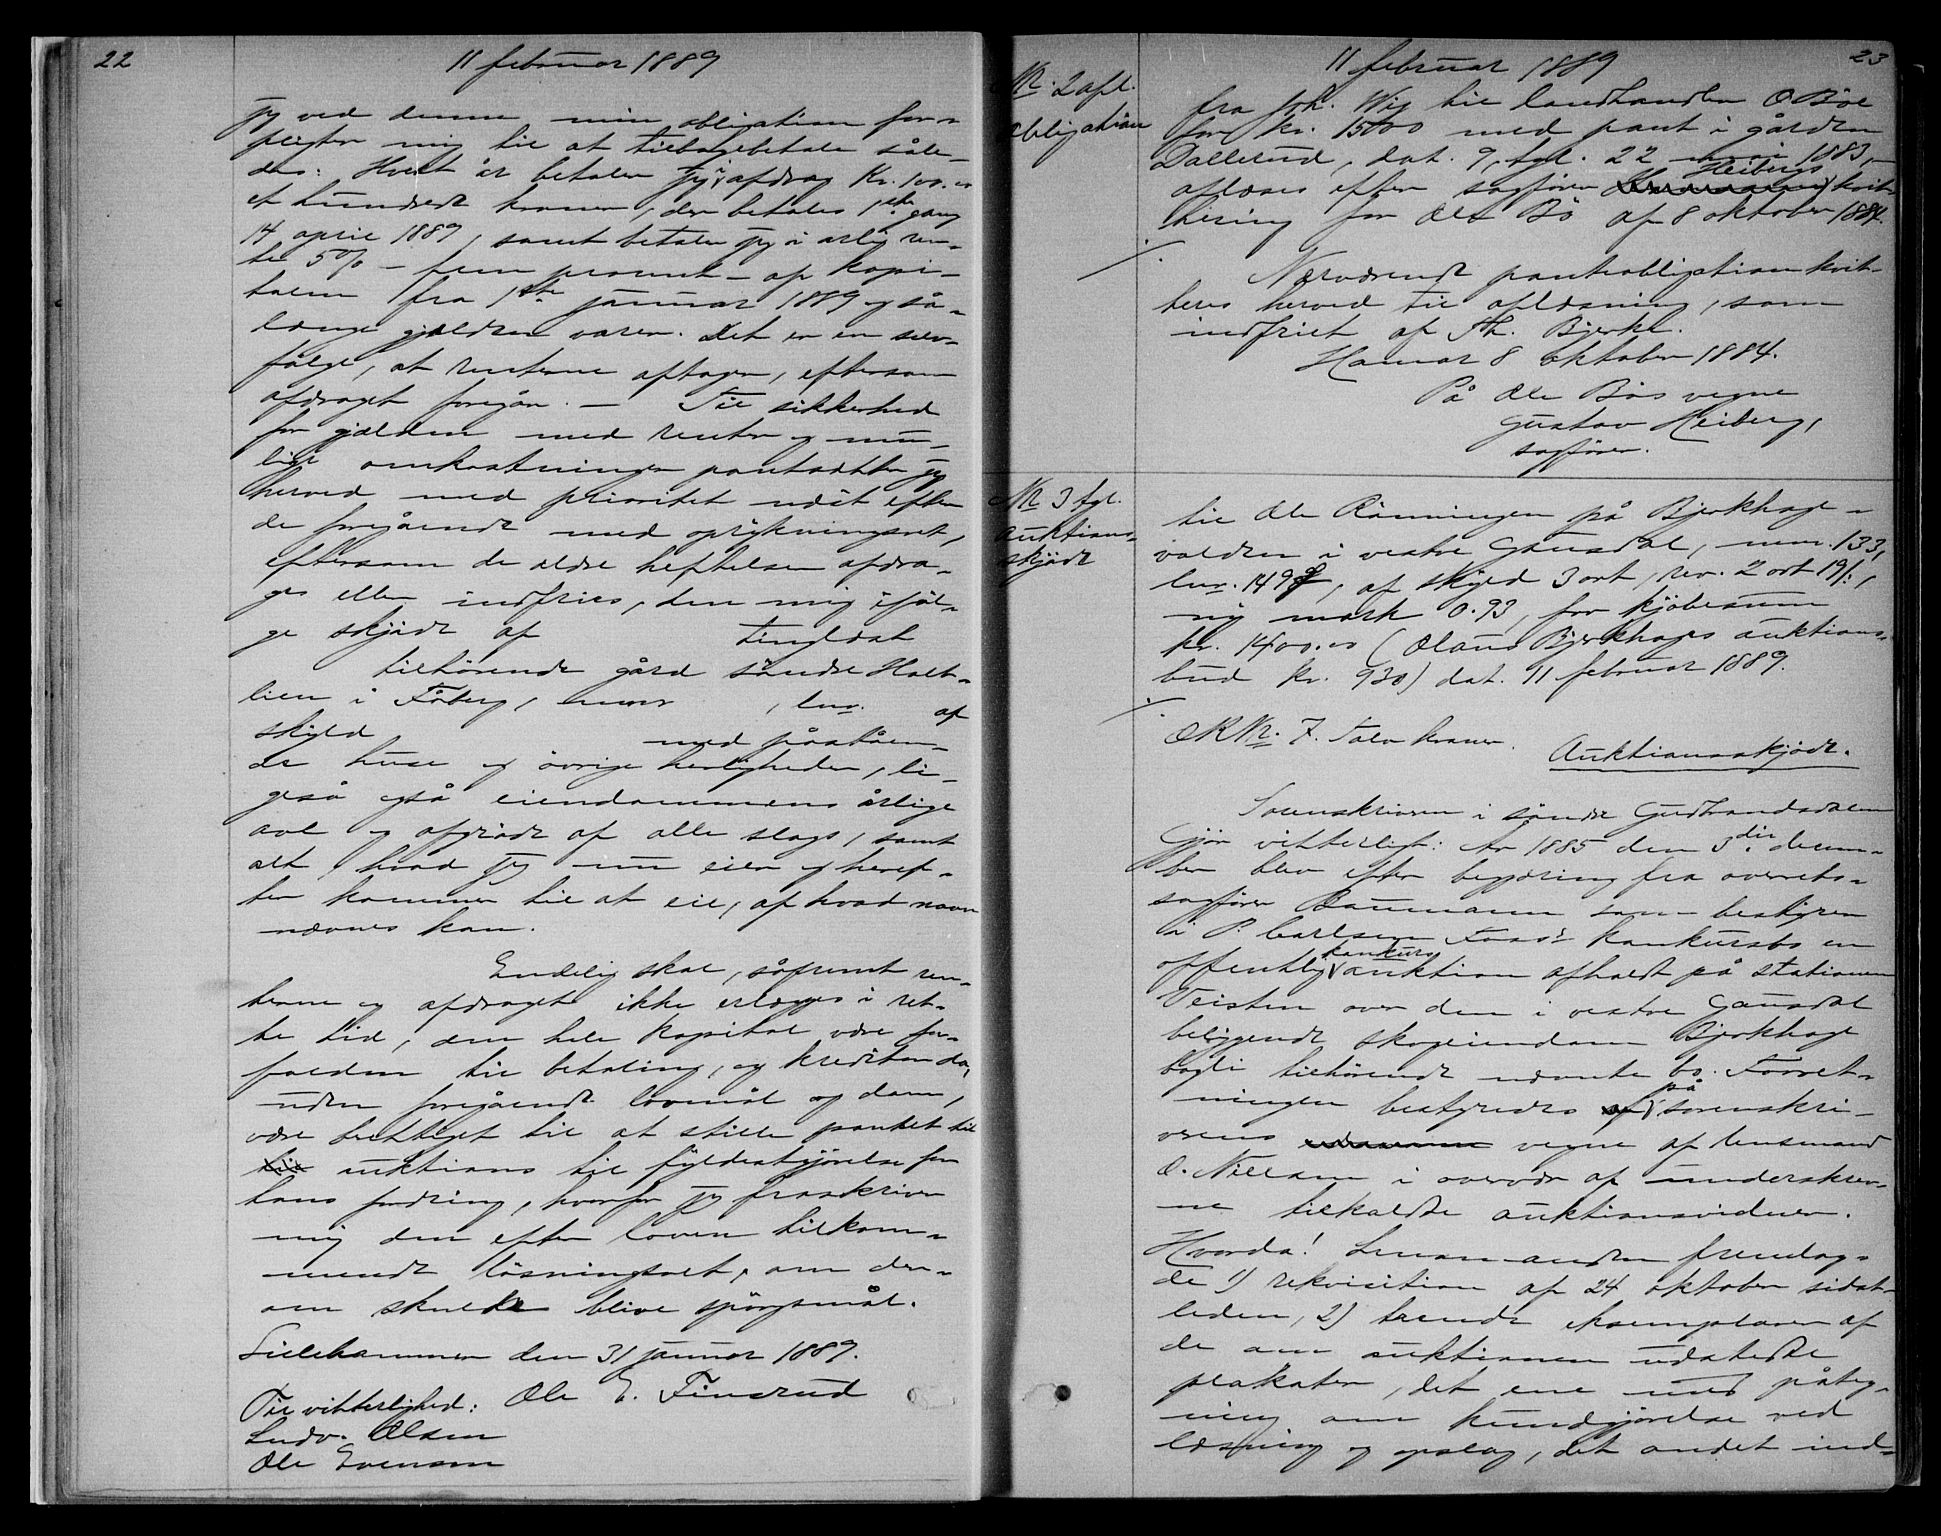 22
11 februar 1889
jeg ved denne min obligation for-
pligter mig til at tilbagebetale såle-
des: Hvert år betaler jeg i afdrag kr. 100.00
et hundrede kroner, der betales 1ste gang
14 april 1889, samt betaler jeg i årlig ren-
te 5% – fem procent – af kapi-
talen fra 1ste januar 1889 og så-
længe gjælden varer. Det er en selv-
følge, at renterne aftager, eftersom
afdraget foregår. – Til sikkerhed
for gjælden med renter og mu-
lige omkostninger pantsætter jeg
herved med prioritet næst efter
de foregående med oprykningsret,
eftersom de ældre heftelser afdra-
ges eller indfries, den mig iføl-
ge skjøde af tinglæst
tilhørende gård søndre Holt-
lien i Fåberg, mnr , lnr. af
skyld med påståen-
de huse og øvrige herligheder, li-
geså også eiendommens årlige
avl og afgrøde af alle slags, samt
alt, hvad jeg nu eier og heref-
ter kommer til at eie, af hvad navn
nævnes kan.
Endelig skal, såfremt ren-
terne og afdraget ikke erlægges i ret-
te tid, den hele kapital være for-
falden til betaling, og kreditor da,
uden foregående lovmål og dom,
være berettiget til at stille pantet til
auktions til fyldestgjørelse for
hans fordring, hvorfor jeg fraskriver
mig den efter loven tilkom-
mende løsningsret, om der-
om skulde blive spørgsmål.
Lillehammer den 31 januar 1889.
Til vitterlighed: Ole E. Finsrud
Ludv. Olsen
Ole Evensen
11 februar 1889
23
Nr. 2 afl.
obligation
fra Joh. Wig til landhandler O Bøe
for kr. 1500 med pant i gården
Dallerud, dat. 9, tgl. 22 mai 1883, –
aflæses efter sagfører Heibergs kvit-
tering for Ole Bö af 8 oktober 1884.
Nærværende panteobligation kvit-
teres herved til aflæsning, som
indfriet af Th. Bjerke.
Hamar 8 oktober 1884.
På Ole Bös vegne
Gustav Heiberg,
sagfører.
Nr 3 tgl.
auktions-
skjøde
til Ole Rønningen på Bjerkhage-
valdren i vestre Gausdal, mnr. 133,
lnr. 149g, af skyld 3 ort, rev. 2 ort 19 /:,
ny mark 0.93, for kjøbesum
kr. 1400.00 (Olaus Bjerkhages auktions-
bud kr. 930) dat. 11 februar 1889.
OK Nr. 7. Tolv kroner.
Auktionsskjøde.
Sorenskriveren i søndre Gudbrandsdalen
Gjør vitterligt: År 1885 den 5die decem-
ber blev efter begjæring fra overrets-
sagfører Baumann som bestyrer
i P. Carlsen Foss's konkursbo en
offentlig konkurs auktion afholdt på stationen
Veisten over den i vestre Gausdal
beliggende skogeiendom Bjerkhage
bagli tilhørende nævnte bo. Forret-
ningen bestyredes på sorenskri-
verens vegne af lensmand
O. Nilssen i overvær af underskrev-
ne tilkaldte auktionsvidner.
Hvorda! Lensmanden fremlag-
de 1) rekvisition af 24 oktober sidst-
leden, 2) trende exemplarer af
de om auktionen udstedte
plakater, det ene med påteg-
ning om kundgjørelse ved
læsning og opslag, det andet ind-